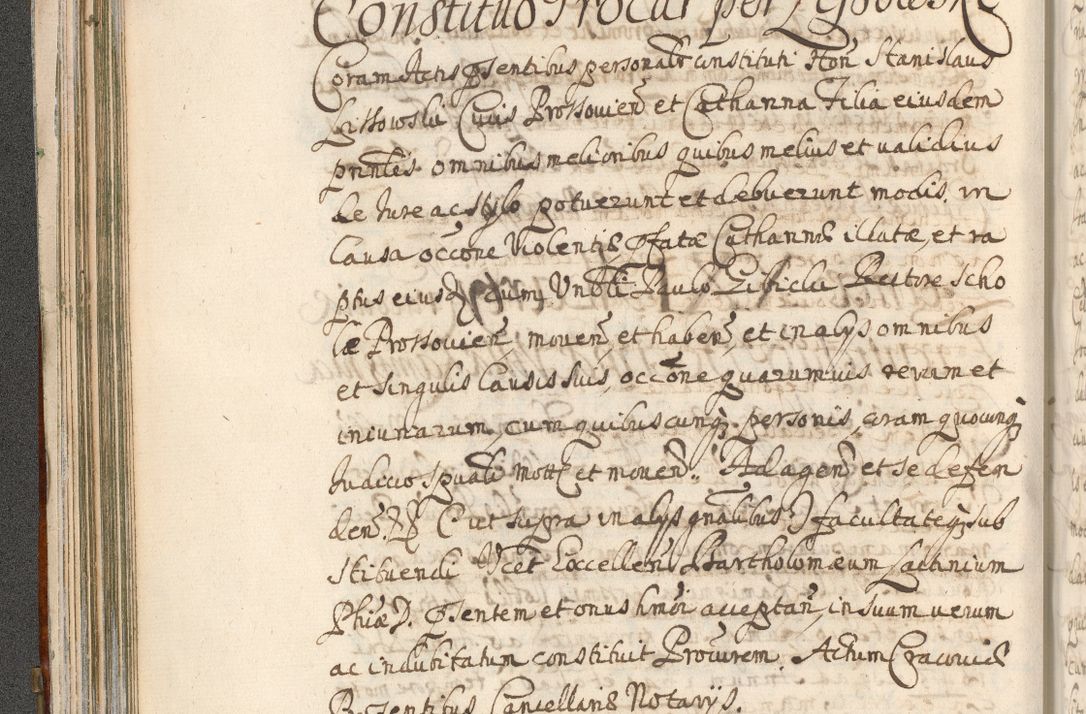 Constitutio Procur per Lissowski
Coram Actis pñtibus personalr constituti Hon Stanislaus
Lissowski Civis Prossovien et Catharina Filia eiusdem
omnibus melioribus quibus melius et validius
de Iure ac stylo potuerunt et debuerunt modis, in
Causa occõne Violentiæ pfatæ Catharinæ illatæ, et ra
ptus eius cum Paulo Rectore Scho
læ Prossovien, moven et haben, et in alijs omnibus
et singulis Causis suis, occõne quarumvis rerum et
iniuriarum, cum quibuscunq personis, coram quocunq
Iudicio spuali mott et moven. Ad agen et se defen
den (ut supra in alijs gnalibus) facultateq sub
stituendi Excellen Bartholomæum
Phiæ D. psentem et onus hmoi acceptan, in suum verum
ac indubitatum constituit Procurem. Actum Cracoviæ
Psentibus Cancellariæ Notarijs.